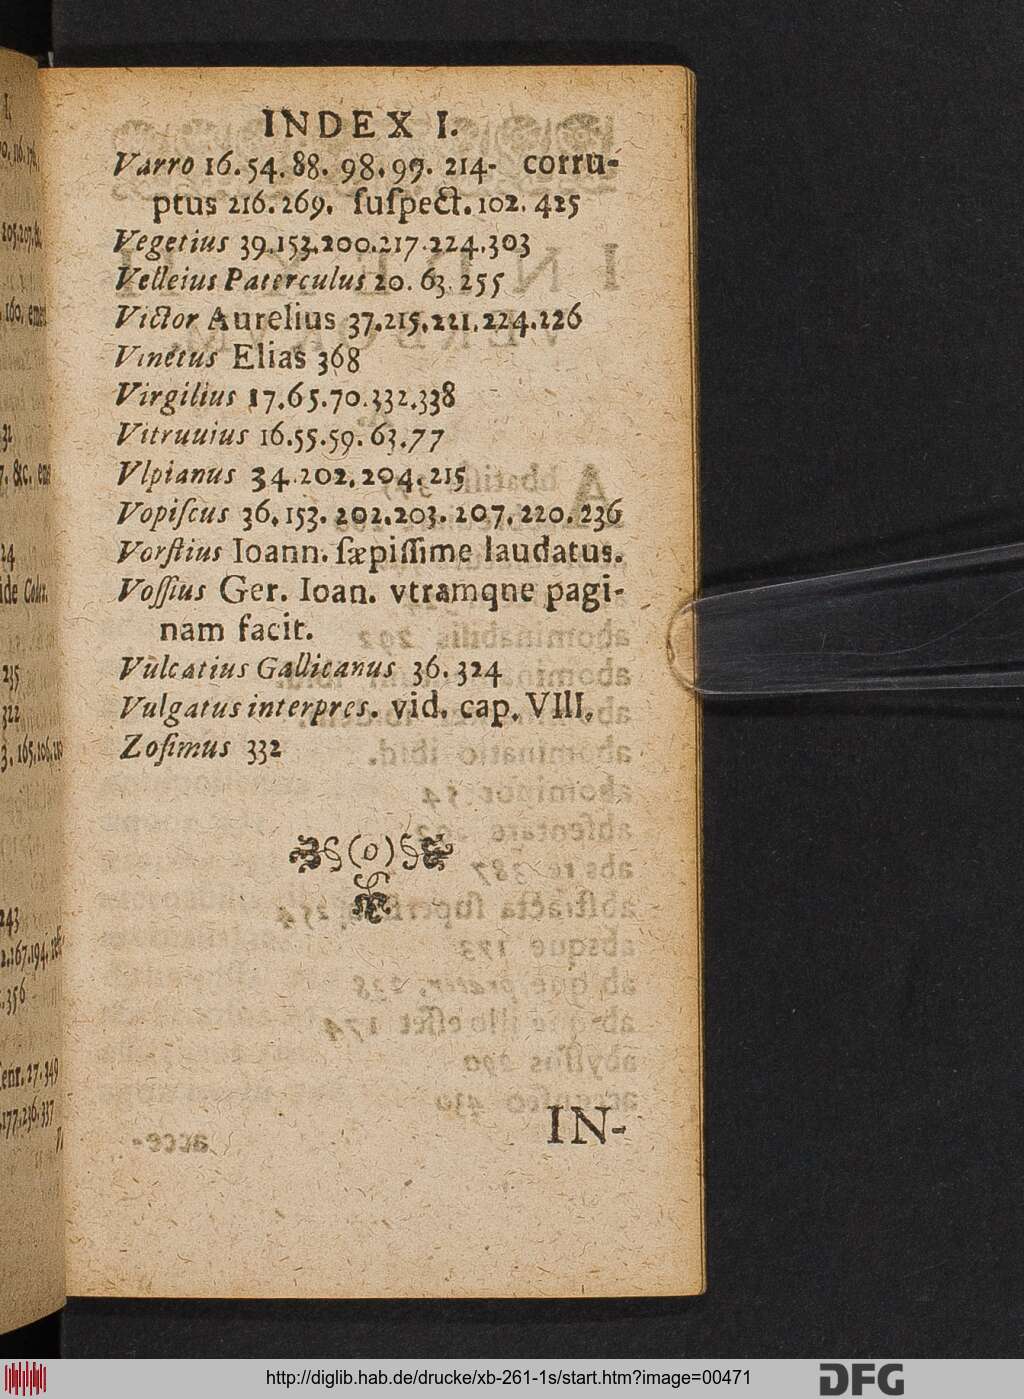 INDEX I.
Varro 16. 54. 88. 98. 99. 214. corru-
ptus 216. 269. ſuſpect. 102. 425
Vegetius 39. 153. 200. 217. 224. 303
Velleius Paterculus 20. 63. 255
Victor Aurelius 37. 215. 221. 224. 226
Vinetus Elias 368
Virgilius 17. 65. 70. 332. 338
Vitruuius 16. 55. 59. 63. 77
Vlpianus 34. 202. 204. 215
Vopiſcus 36. 153. 202. 203. 207. 220. 236
Vorſtius Ioann. ſæpiſſime laudatus.
Voſſius Ger. Ioan. vtramqne pagi-
nam facit.
Vulcatius Gallicanus 36. 324
Vulgatus interpres. vid. cap. VIII.
Zoſimus 332
(o)
IN-
http://diglib.hab.de/drucke/xb-261-1s/start.htm?image=00471
DFG